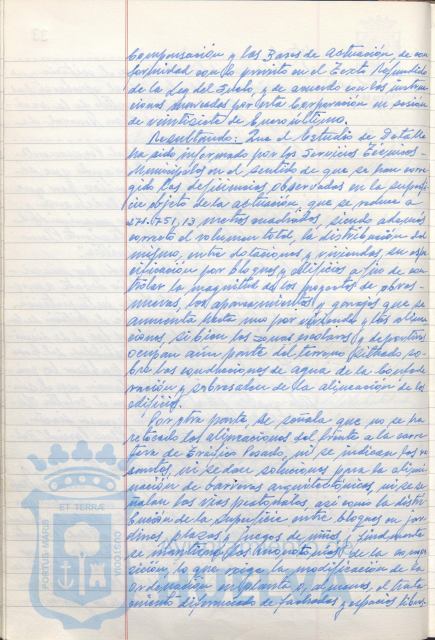 Compensación y las Bases de actuación de con
formidad con lo previsto en el Texto Refundido
de la Ley del Suelo, y de acuerdo con las instruc
ciones marcadas por esta Corporación en sesión
de veintisiete de Enero último.
Resultando: Que el Estudio de Detalle
ha sido informado por los Servicios Técnicos-
Municipales en el sentido de que se han corre
gido las deficiencias observadas en la superfi
cie objeto de la actuación, que se reduce a
271.751,13 metros cuadrados, siendo además
correcto el volumen total, la distribución del
mismo, entre dotaciones y viviendas, su espe
cificación por bloques y edificios a fin de con
trolar la magnitud de los proyectos de obras-
nuevas, los aparcamientos y garajes que se
aumenta hasta uno por vivienda y las alinea
ciones, si bien las zonas escolares y deportivas
ocupan aún parte del terreno situado so
bre las conducciones de agua de la
y sobresalen de la alineación de los
edificios.
Por otra parte, se señala que no se ha
retocado las alineaciones del frente a la carre
tera de Posado, ni se indican los
ni se dan soluciones para la elimi
nación de barreras arquitectónicas, ni se se
ñalan las vías peatonales, así como la distri
bución de la superficie entre bloques en jar
dines, plazas y juegos de niños, y finalmente
se mantiene
lo que exige la modificación de la
ordenación en planta o, al menos, el trata
miento diferenciado de fachadas y espacios libres.
PORTUS MARIS
ET TERRÆ
CUSTODIA